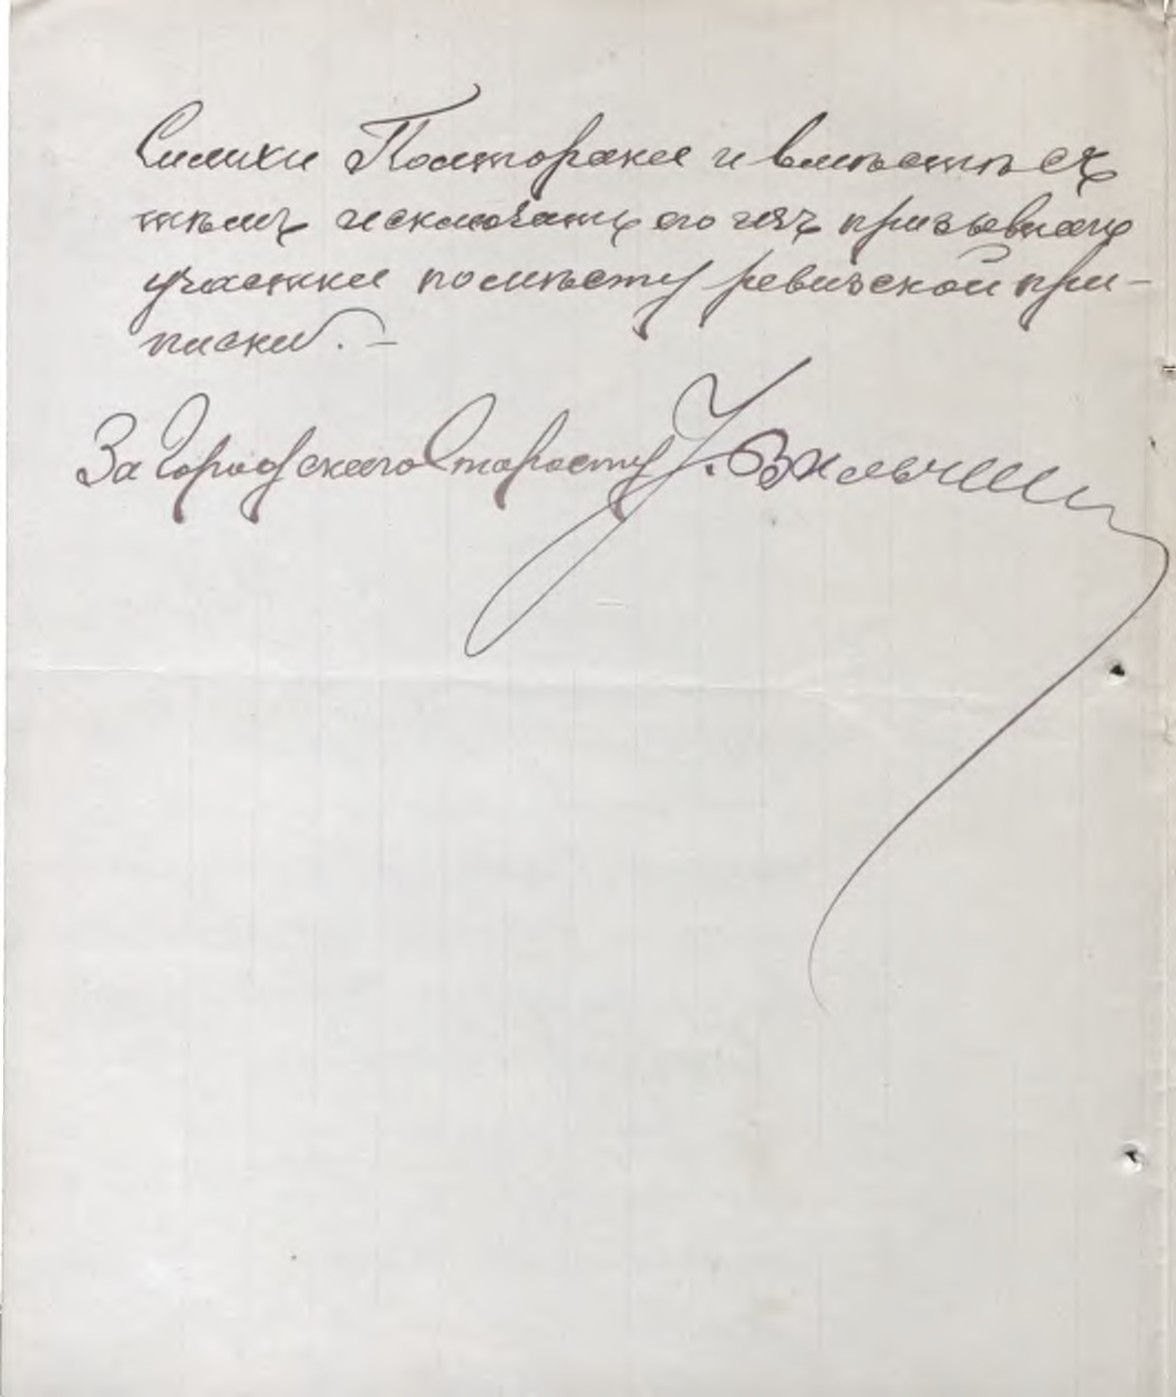 Симхи Полторака и вместе съ
темъ исключить его изъ призывнаго
участка по месту ревизской при-
писки. —
За Городского Старосту